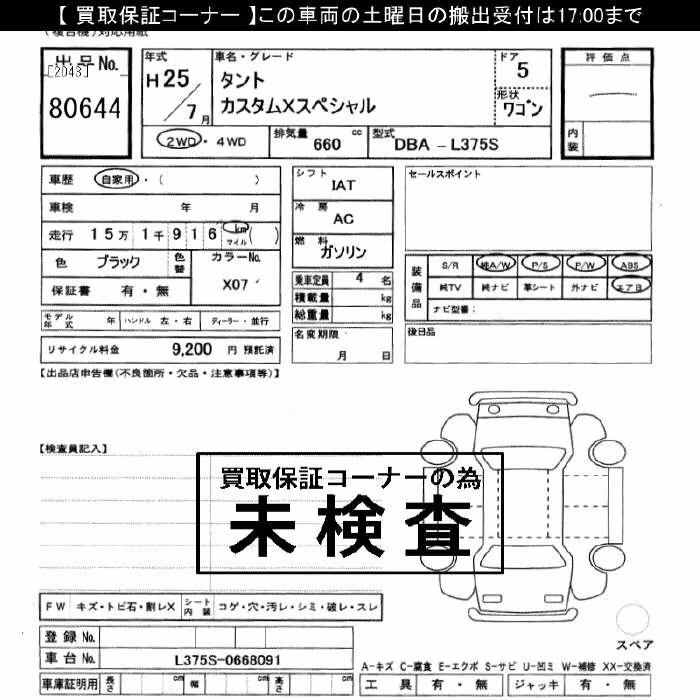 【 買取保証コーナー 】この車両の土曜日の搬出受付は17:00まで
出品No.
[2043]
80644
年式
H25/7月
車名・グレード
タント
カスタムXスペシャル
ドア
5
形状
ワゴン
評価点
内装
2WD・4WD
排気量 660 cc
型式 DBA - L375S
車歴 自家用・( )
車検 年 月
走行 15万1千916 km マイル ( )
色 ブラック 色替 カラーNo. X07
保証書 有・無
モデル年式 年 ハンドル 左・右 ディーラー・並行
リサイクル料金 9,200 円 預託済
シフト
IAT
冷房
AC
燃料
ガソリン
乗車定員 4 名
積載量 kg
総重量 kg
名変期限
月 日
セールスポイント
装備品
S/R 純A/W P/S P/W ABS
純TV 純ナビ 革シート 外ナビ エアB
ナビ型番:
後日品
【出品店申告欄(不良箇所・欠品・注意事項等)】
【検査員記入】
買取保証コーナーの為
未検査
FW キズ・トビ石・割レX シート内装 コゲ・穴・汚レ・シミ・破レ・スレ
登録 No.
車台 No. L375S-0668091
車庫証明用 長さ cm 幅 cm 高さ cm
スペア
A-キズ C-腐食 E-エクボ S-サビ U-凹ミ W-補修 XX-交換済
工具 有・無 ジャッキ 有・無